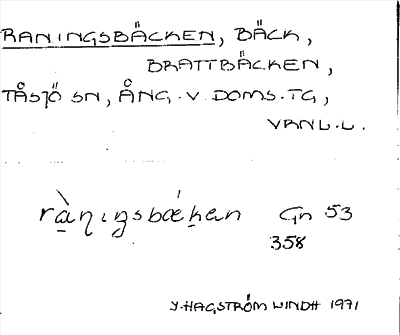 RANINGSBÄCKEN, BÄCK,
BRATTBÄCKEN,
TÅSJÖ SN, ÅNG. V. DOMS. TG,
VRNL. L.
Gn 53
358
Y. HAGSTRÖM LINDH 1971